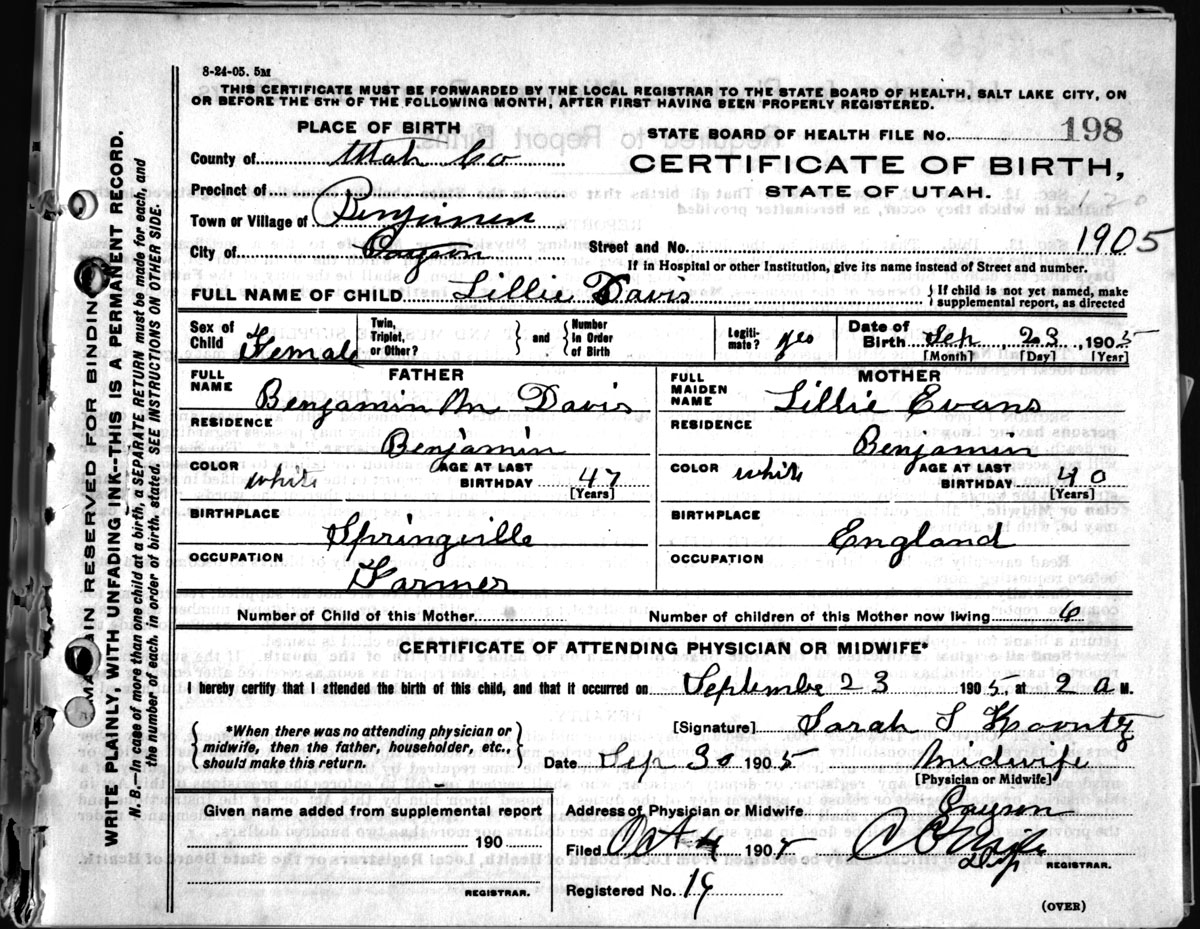 8-24-05. 5M
THIS CERTIFICATE MUST BE FORWARDED BY THE LOCAL REGISTRAR TO THE STATE BOARD OF HEALTH, SALT LAKE CITY, ON
OR BEFORE THE 5TH OF THE FOLLOWING MONTH, AFTER FIRST HAVING BEEN PROPERLY REGISTERED.
PLACE OF BIRTH
STATE BOARD OF HEALTH FILE No. 198
County of Utah Co
CERTIFICATE OF BIRTH,
STATE OF UTAH.
120
Precinct of
Town or Village of Benjimen
City of Payson
Street and No. 1905
If in Hospital or other Institution, give its name instead of Street and number.
FULL NAME OF CHILD Lillie Davis
If child is not yet named, make
supplemental report, as directed
Sex of Child Female
Twin, Triplet, or Other?
and
Number in Order of Birth
Legiti-mate? yes
Date of Birth Sep 23, 1905
[Month] [Day] [Year]
FATHER
FULL NAME Benjamin M Davis
RESIDENCE Benjamin
COLOR white
AGE AT LAST BIRTHDAY 47
[Years]
BIRTHPLACE Springville
OCCUPATION Farmer
MOTHER
FULL MAIDEN NAME Lillie Evans
RESIDENCE Benjamin
COLOR white
AGE AT LAST BIRTHDAY 40
[Years]
BIRTHPLACE England
OCCUPATION
Number of Child of this Mother
Number of children of this Mother now living 6
CERTIFICATE OF ATTENDING PHYSICIAN OR MIDWIFE*
I hereby certify that I attended the birth of this child, and that it occurred on Septembe 23 1905, at 2 a M.
*When there was no attending physician or
midwife, then the father, householder, etc.,
should make this return.
[Signature] Sarah S Koontz
Date Sep 30 1905
midwife
[Physician or Midwife]
Given name added from supplemental report
190
REGISTRAR.
Address of Physician or Midwife Payson
Filed Oct 4 1905
REGISTRAR.
Registered No. 19
(OVER)
MARGIN RESERVED FOR BINDING
WRITE PLAINLY, WITH UNFADING INK--THIS IS A PERMANENT RECORD.
N. B.—In case of more than one child at a birth, a SEPARATE RETURN must be made for each, and
the number of each, in order of birth, stated. SEE INSTRUCTIONS ON OTHER SIDE.